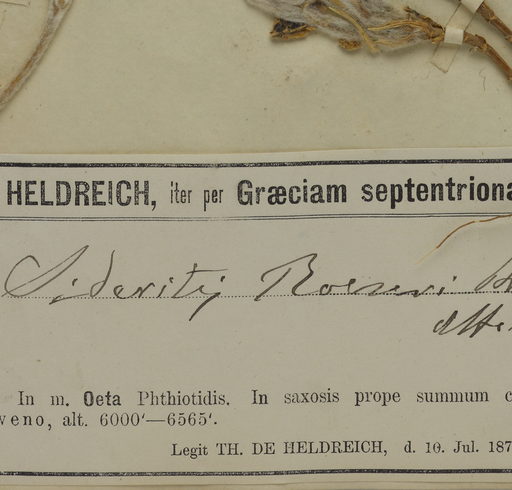 HELDREICH, iter per Græciam septentriona
Sideritis Roeseri
In m. Oeta Phthiotidis. In saxosis prope summum c
veno, alt. 6000′—6565′.
Legit TH. DE HELDREICH, d. 10. Jul. 187